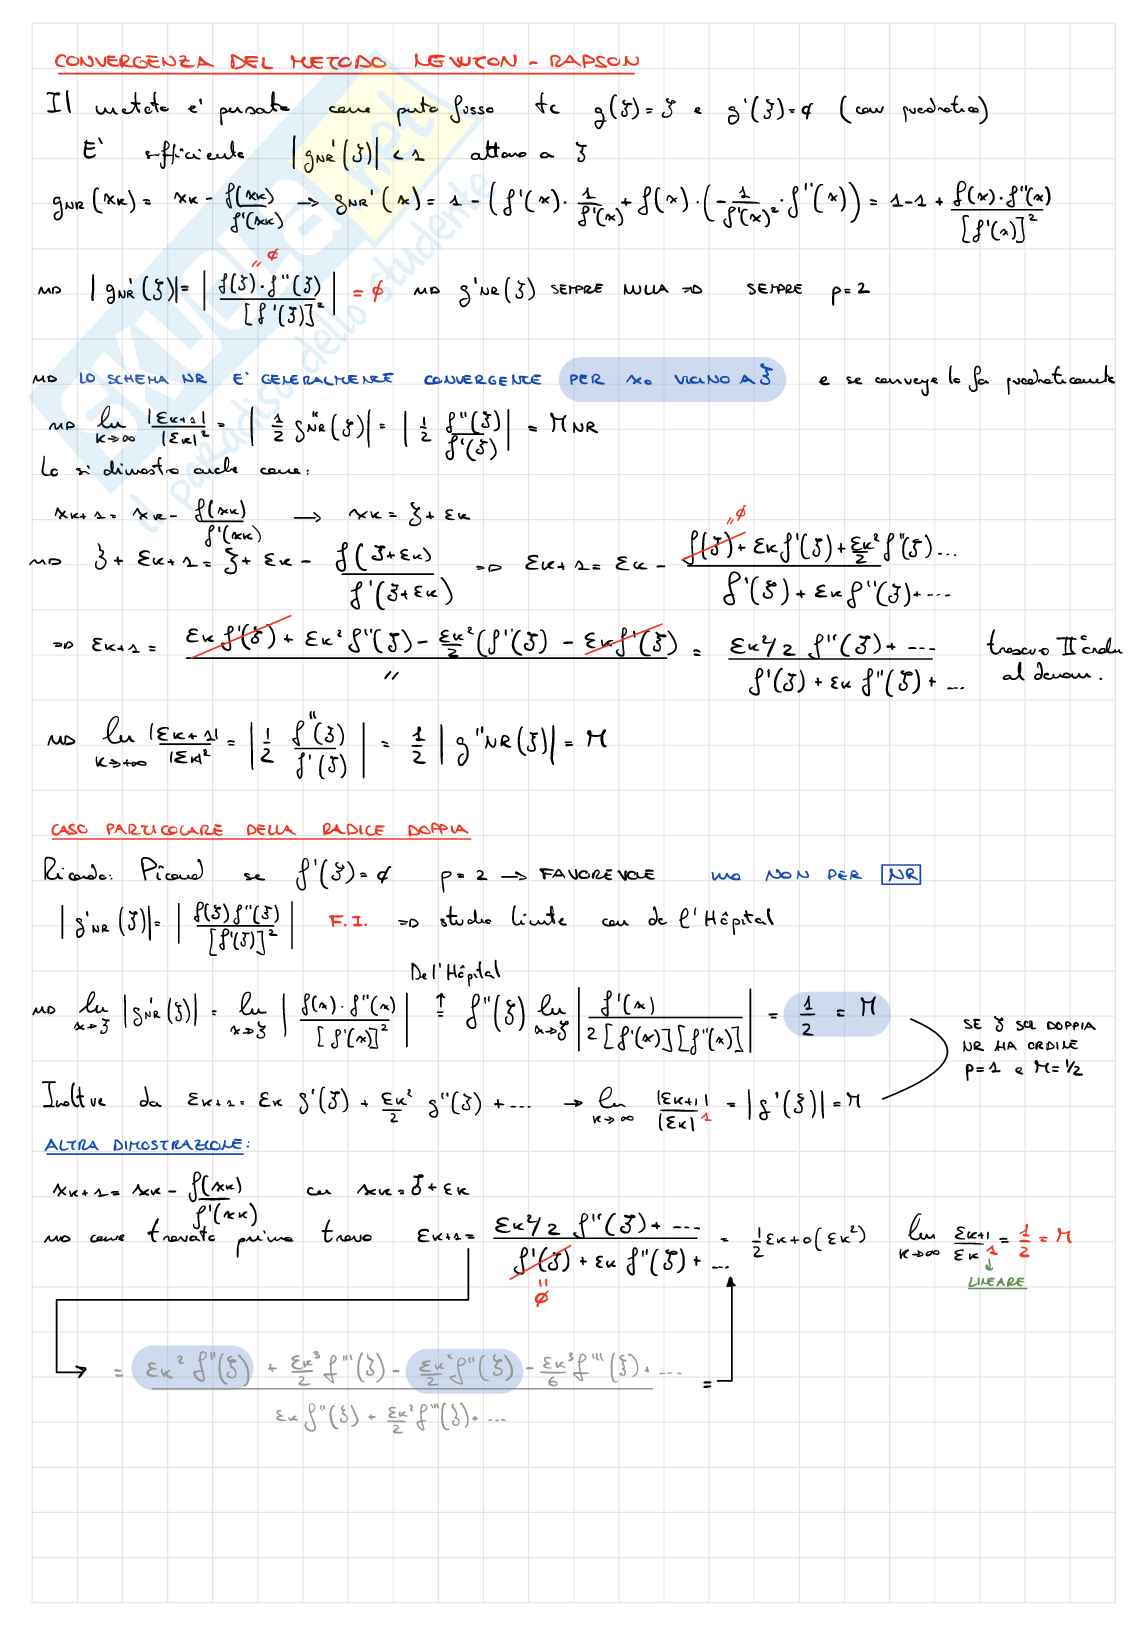 CONVERGENZA DEL METODO NEWTON - RAPSON
Il metodo e' pensato come punto fisso tc g(ξ) = ξ e g'(ξ) = ∅ (conv quadratica)
E' sufficiente |g'NR(ξ)| < 1 attorno a ξ
gNR(xK) = xK - f(xK)/f'(xK) → gNR'(x) = 1 - (f'(x) · 1/f'(x) + f(x) · (-1/f'(x)² · f''(x))) = 1-1 + f(x)·f''(x)/[f'(x)]²
|g'NR(ξ)| = |f(ξ)·f''(ξ)/[f'(ξ)]²| = ∅ ⇒ g'NR(ξ) SEMPRE NULLA ⇒ SEMPRE p=2
" ∅
⇒ LO SCHEMA NR E' GENERALMENTE CONVERGENTE PER x0 VICINO A ξ e se converge lo fa quadraticamente
⇒ lim K→∞ |εK+1|/|εK|² = |1/2 g''NR(ξ)| = |1/2 f''(ξ)/f'(ξ)| = MNR
Lo si dimostra anche come:
xK+1 = xK - f(xK)/f'(xK) → xK = ξ + εK
⇒ ξ + εK+1 = ξ + εK - f(ξ+εK)/f'(ξ+εK) ⇒ εK+1 = εK - (f(ξ) + εK f'(ξ) + εK²/2 f''(ξ) ...)/(f'(ξ) + εK f''(ξ) + ...)
" ∅
⇒ εK+1 = (εK f'(ξ) + εK² f''(ξ) - εK²/2 (f''(ξ) - εK f'(ξ))/" = (εK²/2 f''(ξ) + ...)/(f'(ξ) + εK f''(ξ) + ...) trascuro II ordine al denom.
⇒ lim K→+∞ |εK+1|/|εK|² = |1/2 f''(ξ)/f'(ξ)| = 1/2 |g''NR(ξ)| = M
CASO PARTICOLARE DELLA RADICE DOPPIA
Ricorda: Picard se f'(ξ) = ∅ p=2 → FAVOREVOLE ma NON PER NR
|g'NR(ξ)| = |f(ξ) f''(ξ)/[f'(ξ)]²| F.I. ⇒ studio limite con de l'Hôpital
De l'Hôpital
⇒ lim x→ξ |g'NR(ξ)| = lim x→ξ |f(x)·f''(x)/[f'(x)]²| = f''(ξ) lim x→ξ |f'(x)/2[f'(x)][f''(x)]| = 1/2 = M
SE ξ SOL DOPPIA
NR HA ORDINE
p=1 e M=1/2
Inoltre da εK+1 = εK g'(ξ) + εK²/2 g''(ξ) + ... → lim K→∞ |εK+1|/|εK|¹ = |g'(ξ)| = M
ALTRA DIMOSTRAZIONE:
xK+1 = xK - f(xK)/f'(xK) con xK = ξ + εK
⇒ come trovato prima trovo εK+1 = (εK²/2 f''(ξ) + ...)/(f'(ξ) + εK f''(ξ) + ...) = 1/2 εK + o(εK²) lim K→∞ εK+1/εK¹ = 1/2 = M
" ∅
LINEARE
= (εK² f''(ξ) + εK³/2 f'''(ξ) - εK²/2 f''(ξ) - εK³/6 f'''(ξ) + ...)/(εK f''(ξ) + εK²/2 f'''(ξ) + ...) =
SKUOLA.net
il paradiso dello studente